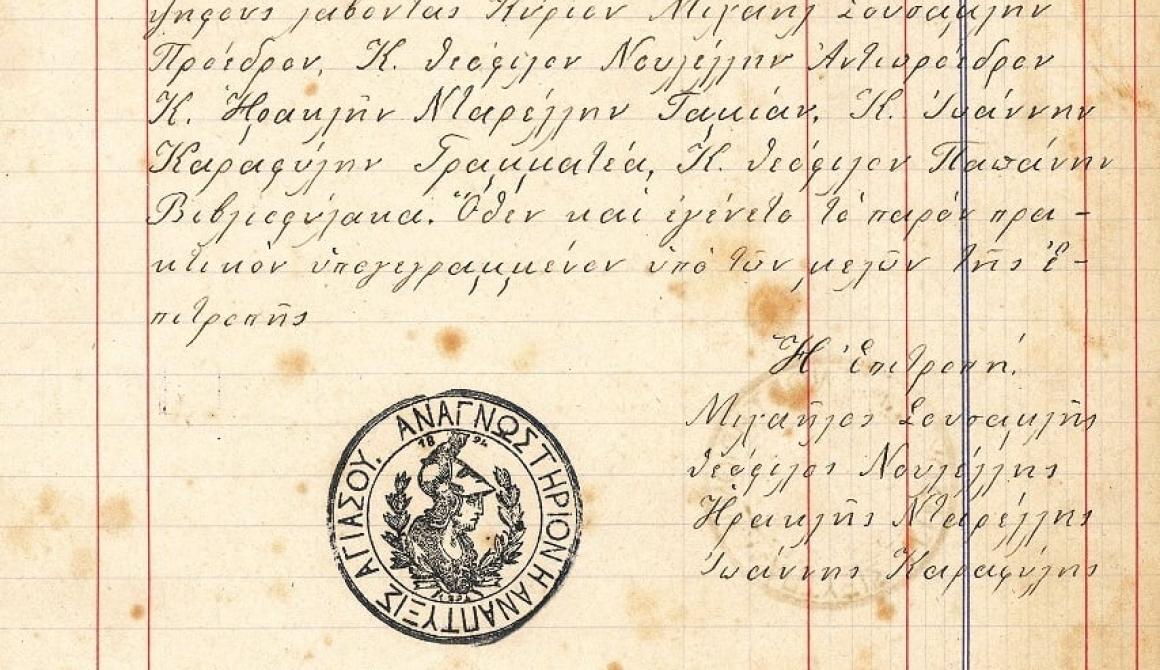 ψήφους λαβόντας Κύριον Μιχαὴλ Σουσαμλῆν
Πρόεδρον, Κ. Θεόφιλον Νουλέλλην Ἀντιπρόεδρον
Κ. Ἡρακλῆν Νταρέλλην Ταμίαν, Κ. Ἰωάννην
Καραφύλην Γραμματέα, Κ. Θεόφιλον Παπάνην
Βιβλιοφύλακα. Ὅθεν καὶ ἐγένετο τὸ παρὸν πρα-
κτικὸν ὑπογεγραμμένον ὑπὸ τῶν μελῶν τῆς Ἐ-
πιτροπῆς
Ἡ Ἐπιτροπή.
Μιχαῆλος Σουσαμλῆς
Θεόφιλος Νουλέλλης
Ἡρακλῆς Νταρέλλης
Ἰωάννης Καραφύλης
ΑΝΑΓΝΩΣΤΗΡΙΟΝ Η ΑΝΑΠΤΥΞΙΣ ΑΓΙΑΣΟΥ.
1894